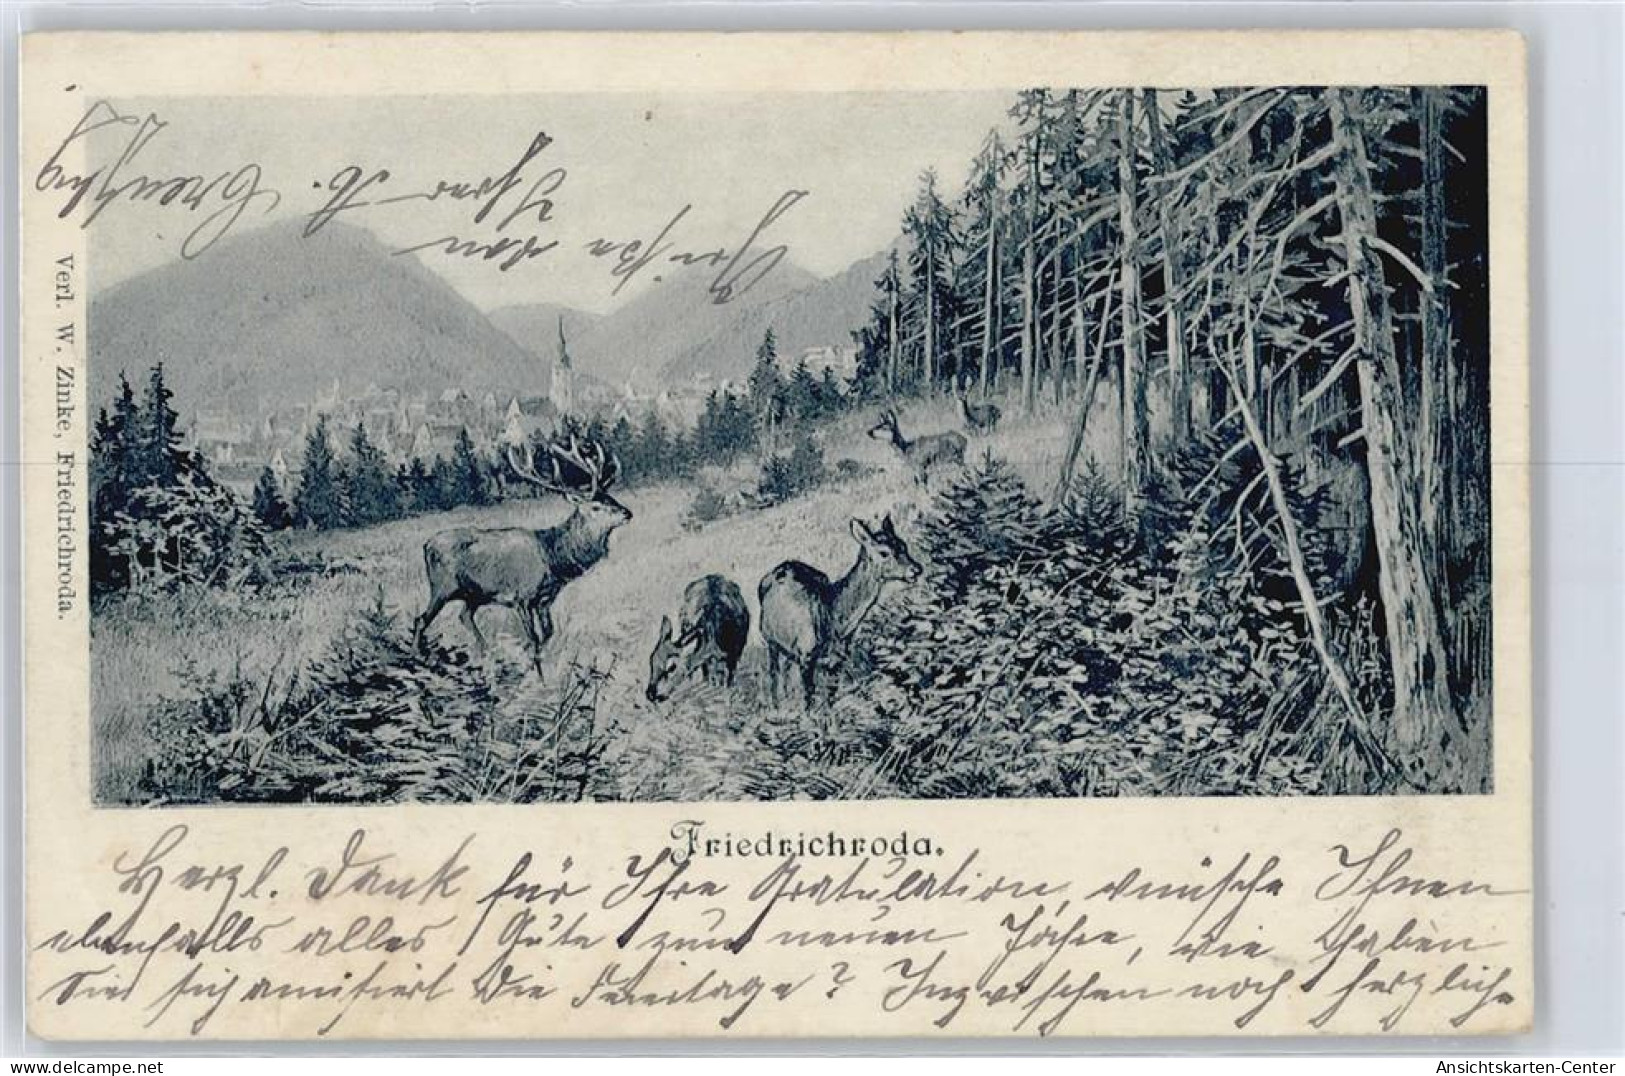 Friedrichroda.
Herzl. Dank für Ihre Gratulation, wünsche Ihnen
ebenfalls alles Gute zum neuen Jahre, wie haben
Sie sich amüsiert die Feiertage? Inzwischen noch herzliche
Grüße von
Ihrer
Verl. W. Zinke, Friedrichroda.
akpool.de
Ansichtskarten-Center